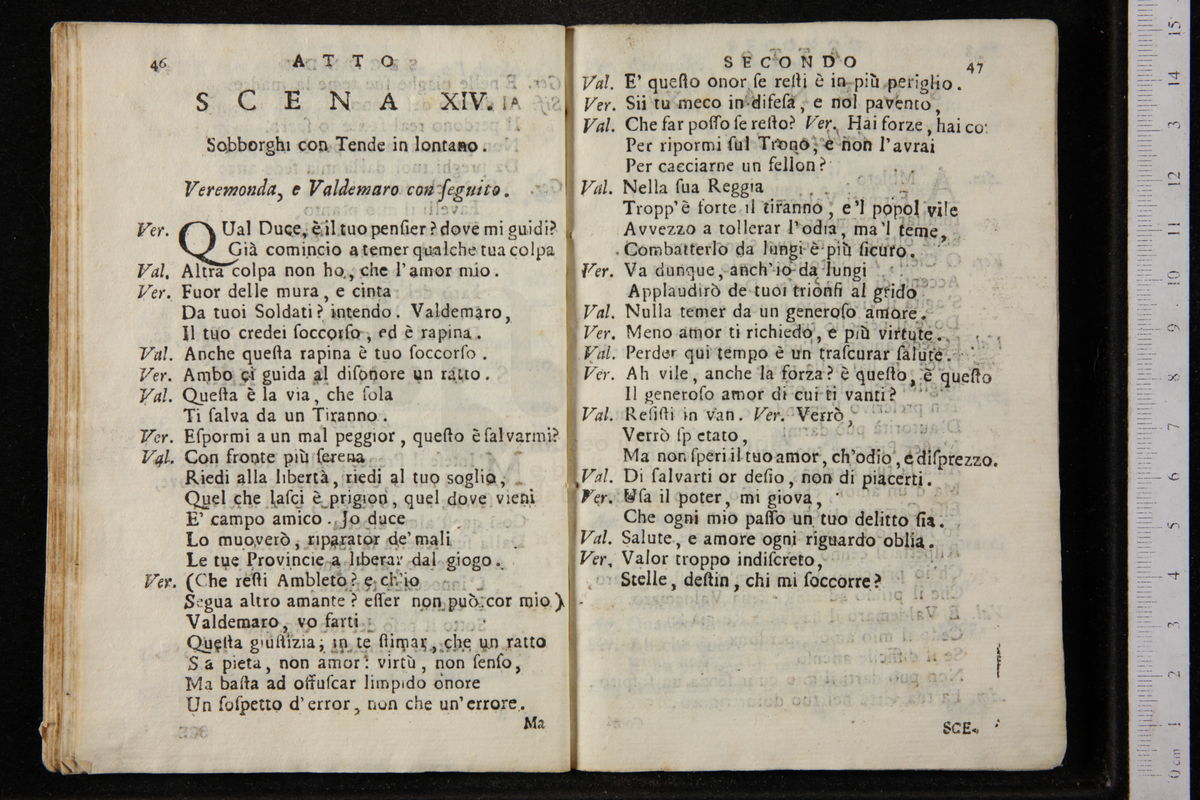 46 ATTO
SCENA XIV.
Sobborghi con Tende in lontano.
Veremonda, e Valdemaro con ſeguito.
Ver. QUal Duce, è il tuo penſier? dove mi guidi?
Già comincio a temer qualche tua colpa
Val. Altra colpa non ho, che l'amor mio.
Ver. Fuor delle mura, e cinta
Da tuoi Soldati? intendo. Valdemaro,
Il tuo credei ſoccorſo, ed è rapina.
Val. Anche queſta rapina è tuo ſoccorſo.
Ver. Ambo ci guida al diſonore un ratto.
Val. Queſta è la via, che ſola
Ti ſalva da un Tiranno.
Ver. Eſpormi a un mal peggior, queſto è ſalvarmi?
Val. Con fronte più ſerena
Riedi alla libertà, riedi al tuo soglio,
Quel che laſci è prigion, quel dove vieni
E' campo amico. Jo duce
Lo muoverò, riparator de' mali
Le tue Provincie a liberar dal giogo.
Ver. (Che reſti Ambleto? e ch'io
Segua altro amante? eſſer non può cor mio)
Valdemaro, vo farti
Queſta giuſtizia; in te ſtimar, che un ratto
S a pieta, non amor: virtù, non ſenſo,
Ma baſta ad offuſcar limpido onore
Un ſoſpetto d'error, non che un'errore.
Ma
SECONDO 47
Val. E' queſto onor ſe reſti è in più periglio.
Ver. Sii tu meco in difeſa, e nol pavento,
Val. Che far poſſo ſe reſto? Ver. Hai forze, hai co:
Per ripormi ſul Trono, e non l'avrai
Per cacciarne un fellon?
Val. Nella ſua Reggia
Tropp'è forte il tiranno, e'l popol vile
Avvezzo a tollerar l'odia, ma'l teme,
Combatterlo da lungi è più ſicuro.
Ver. Va dunque, anch'io da lungi
Applaudirò de tuoi trionfi al grido
Val. Nulla temer da un generoſo amore.
Ver. Meno amor ti richiedo, e più virtute.
Val. Perder qui tempo è un traſcurar ſalute.
Ver. Ah vile, anche la forza? è queſto, è queſto
Il generoſo amor di cui ti vanti?
Val. Reſiſti in van. Ver. Verrò,
Verrò ſp etato,
Ma non ſperi il tuo amor, ch'odio, e diſprezzo.
Val. Di ſalvarti or deſio, non di piacerti.
Ver. Uſa il poter, mi giova,
Che ogni mio paſſo un tuo delitto ſia.
Val. Salute, e amore ogni riguardo oblia.
Ver. Valor troppo indiſcreto,
Stelle, deſtin, chi mi ſoccorre?
SCE-